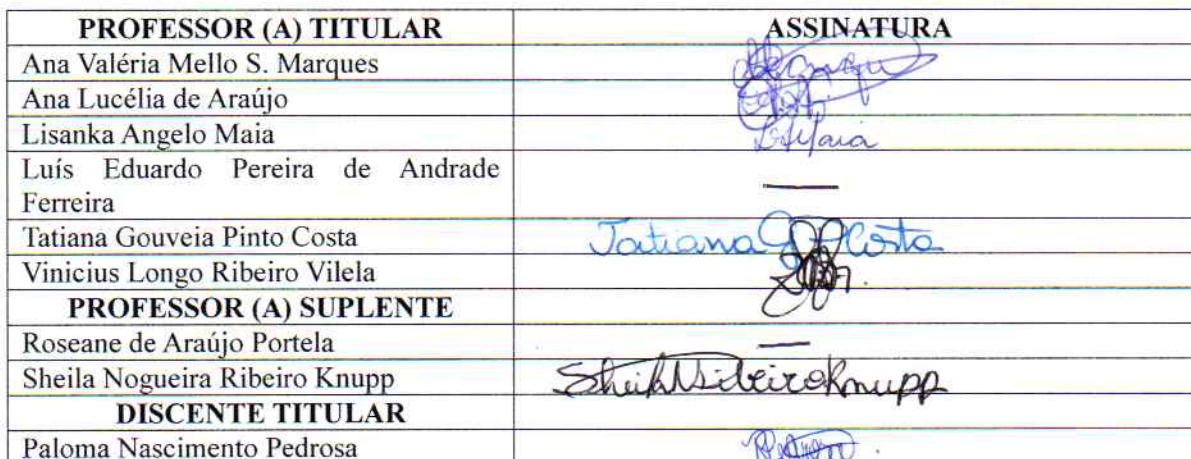 PROFESSOR (A) TITULAR ASSINATURA
Ana Valéria Mello S. Marques
Ana Lucélia de Araújo
Lisanka Angelo Maia LAMaia
Luís Eduardo Pereira de Andrade
Ferreira —
Tatiana Gouveia Pinto Costa Tatiana G P Costa
Vinicius Longo Ribeiro Vilela
PROFESSOR (A) SUPLENTE
Roseane de Araújo Portela —
Sheila Nogueira Ribeiro Knupp Sheila N Ribeiro Knupp
DISCENTE TITULAR
Paloma Nascimento Pedrosa